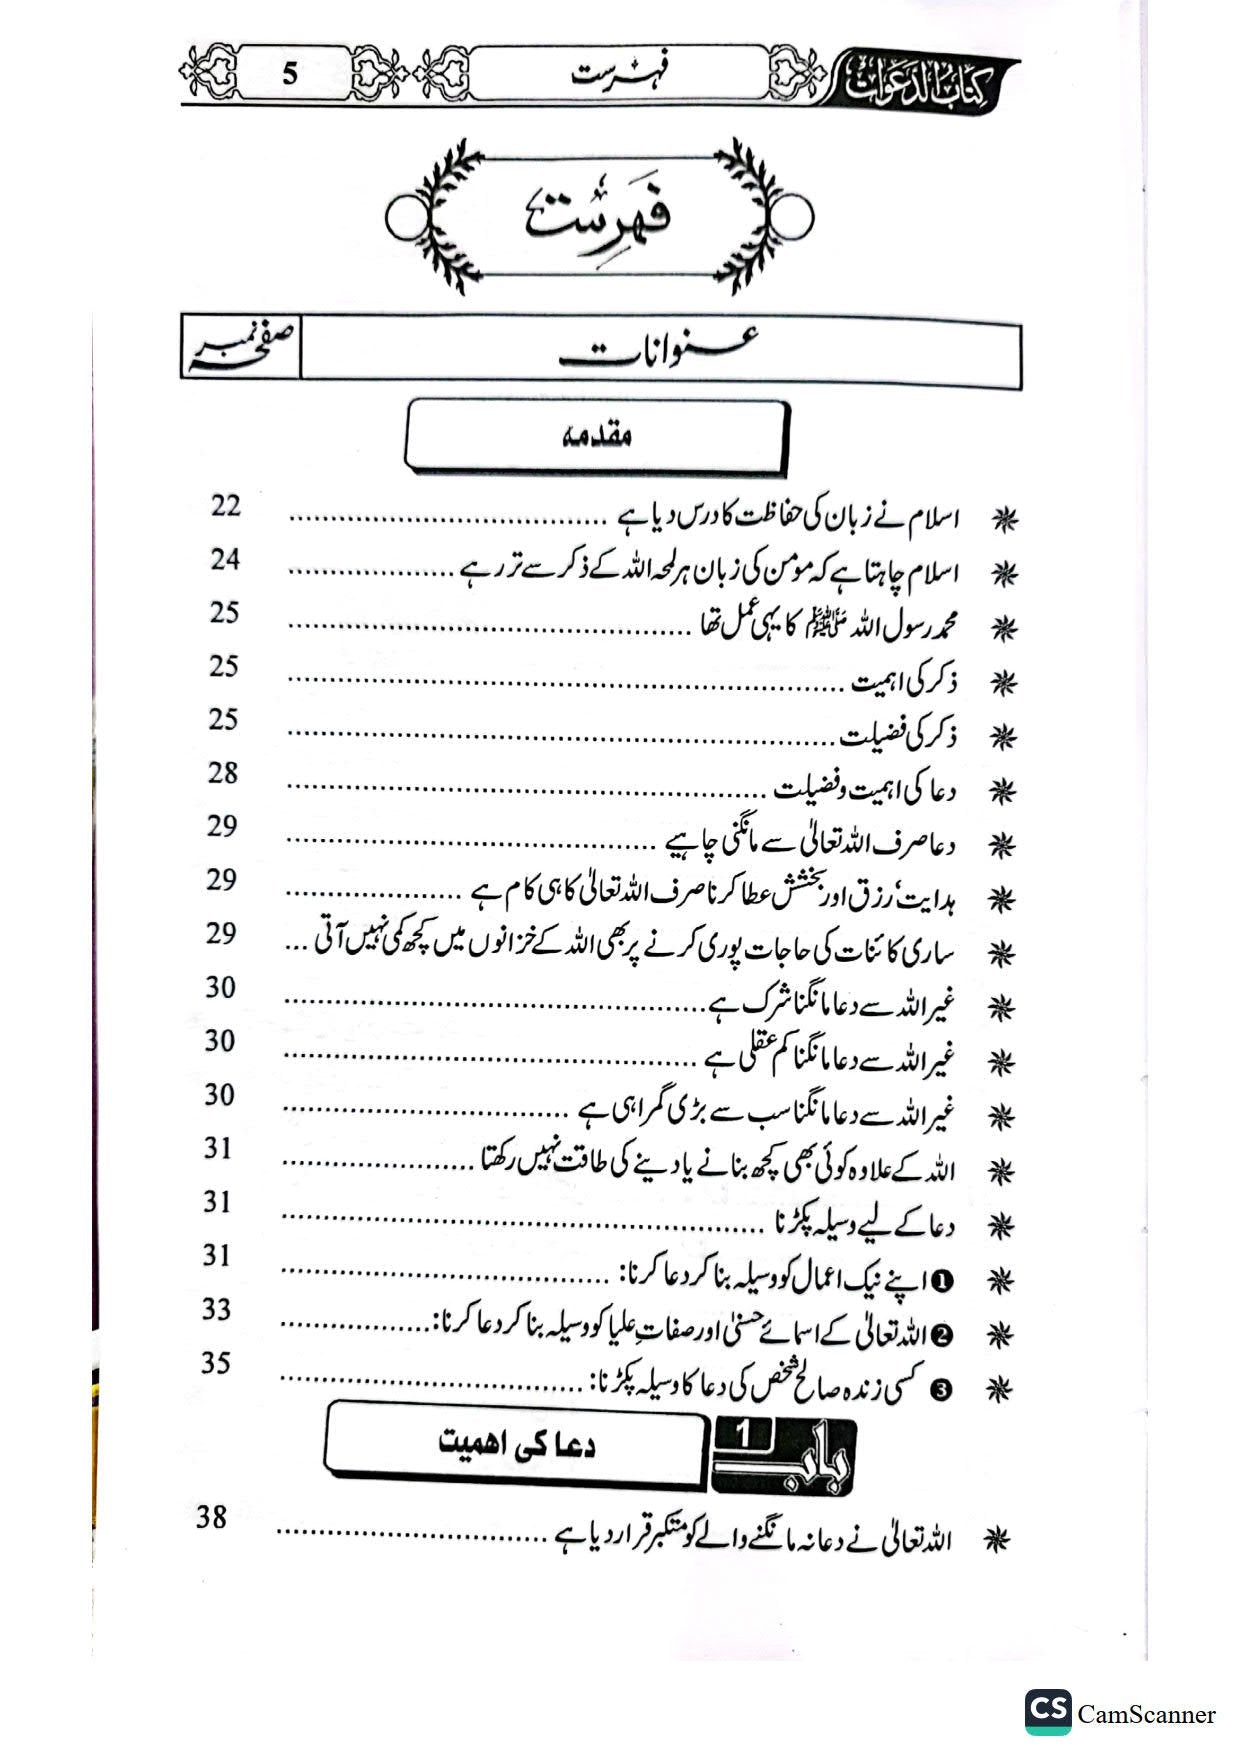 کتاب الدعوات فہرست 5
فہرست
عنوانات صفحہ نمبر
مقدمہ
اسلام نے زبان کی حفاظت کا درس دیا ہے ........ 22
اسلام چاہتا ہے کہ مؤمن کی زبان ہر لمحہ اللہ کے ذکر سے تر رہے ........ 24
محمد رسول اللہ ﷺ کا یہی عمل تھا ........ 25
ذکر کی اہمیت ........ 25
ذکر کی فضیلت ........ 25
دعا کی اہمیت و فضیلت ........ 28
دعا صرف اللہ تعالیٰ سے مانگنی چاہیے ........ 29
ہدایت‘ رزق اور بخشش عطا کرنا صرف اللہ تعالیٰ کا ہی کام ہے ........ 29
ساری کائنات کی حاجات پوری کرنے پر بھی اللہ کے خزانوں میں کچھ کمی نہیں آتی ... 29
غیر اللہ سے دعا مانگنا شرک ہے ........ 30
غیر اللہ سے دعا مانگنا کم عقلی ہے ........ 30
غیر اللہ سے دعا مانگنا سب سے بڑی گمراہی ہے ........ 30
اللہ کے علاوہ کوئی بھی کچھ بنانے یا دینے کی طاقت نہیں رکھتا ........ 31
دعا کے لیے وسیلہ پکڑنا ........ 31
❶ اپنے نیک اعمال کو وسیلہ بنا کر دعا کرنا: ........ 31
❷ اللہ تعالیٰ کے اسمائے حسنیٰ اور صفاتِ علیا کو وسیلہ بنا کر دعا کرنا: ........ 33
❸ کسی زندہ صالح شخص کی دعا کا وسیلہ پکڑنا: ........ 35
باب 1 دعا کی اہمیت
اللہ تعالیٰ نے دعا نہ مانگنے والے کو متکبر قرار دیا ہے ........ 38
CS CamScanner